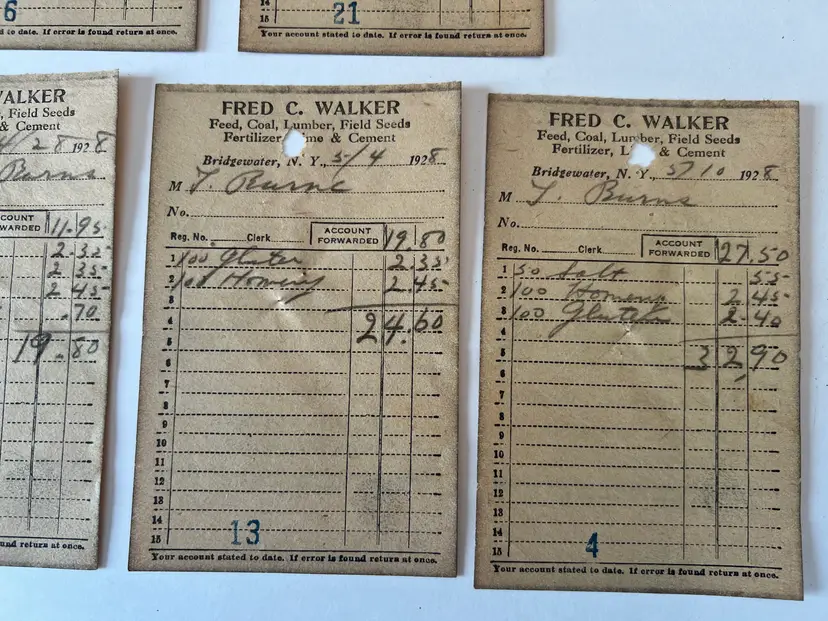 6
d to date. If error is found return at once.
15
21
Your account stated to date. If error is found return at once.
WALKER
, Field Seeds
& Cement
4/28 1928
Burns
COUNT
WARDED 11.95
2.35
2.35
2.45
.70
19.80
und return at once.
FRED C. WALKER
Feed, Coal, Lumber, Field Seeds
Fertilizer, Lime & Cement
Bridgewater, N. Y., 5/4 1928
M T. Burns
No.
Reg. No. Clerk ACCOUNT FORWARDED 19.80
1 100 Gluten 2.35
2 100 Hominy 2.45
3
4 24.60
5
6
7
8
9
10
11
12
13
14
15
13
Your account stated to date. If error is found return at once.
FRED C. WALKER
Feed, Coal, Lumber, Field Seeds
Fertilizer, L & Cement
Bridgewater, N. Y., 5/10 1928
M T. Burns
No.
Reg. No. Clerk ACCOUNT FORWARDED 27.50
1 50 Salt 55
2 100 Hominy 2.45
3 100 Gluten 2.40
4
5 32.90
6
7
8
9
10
11
12
13
14
15
4
Your account stated to date. If error is found return at once.